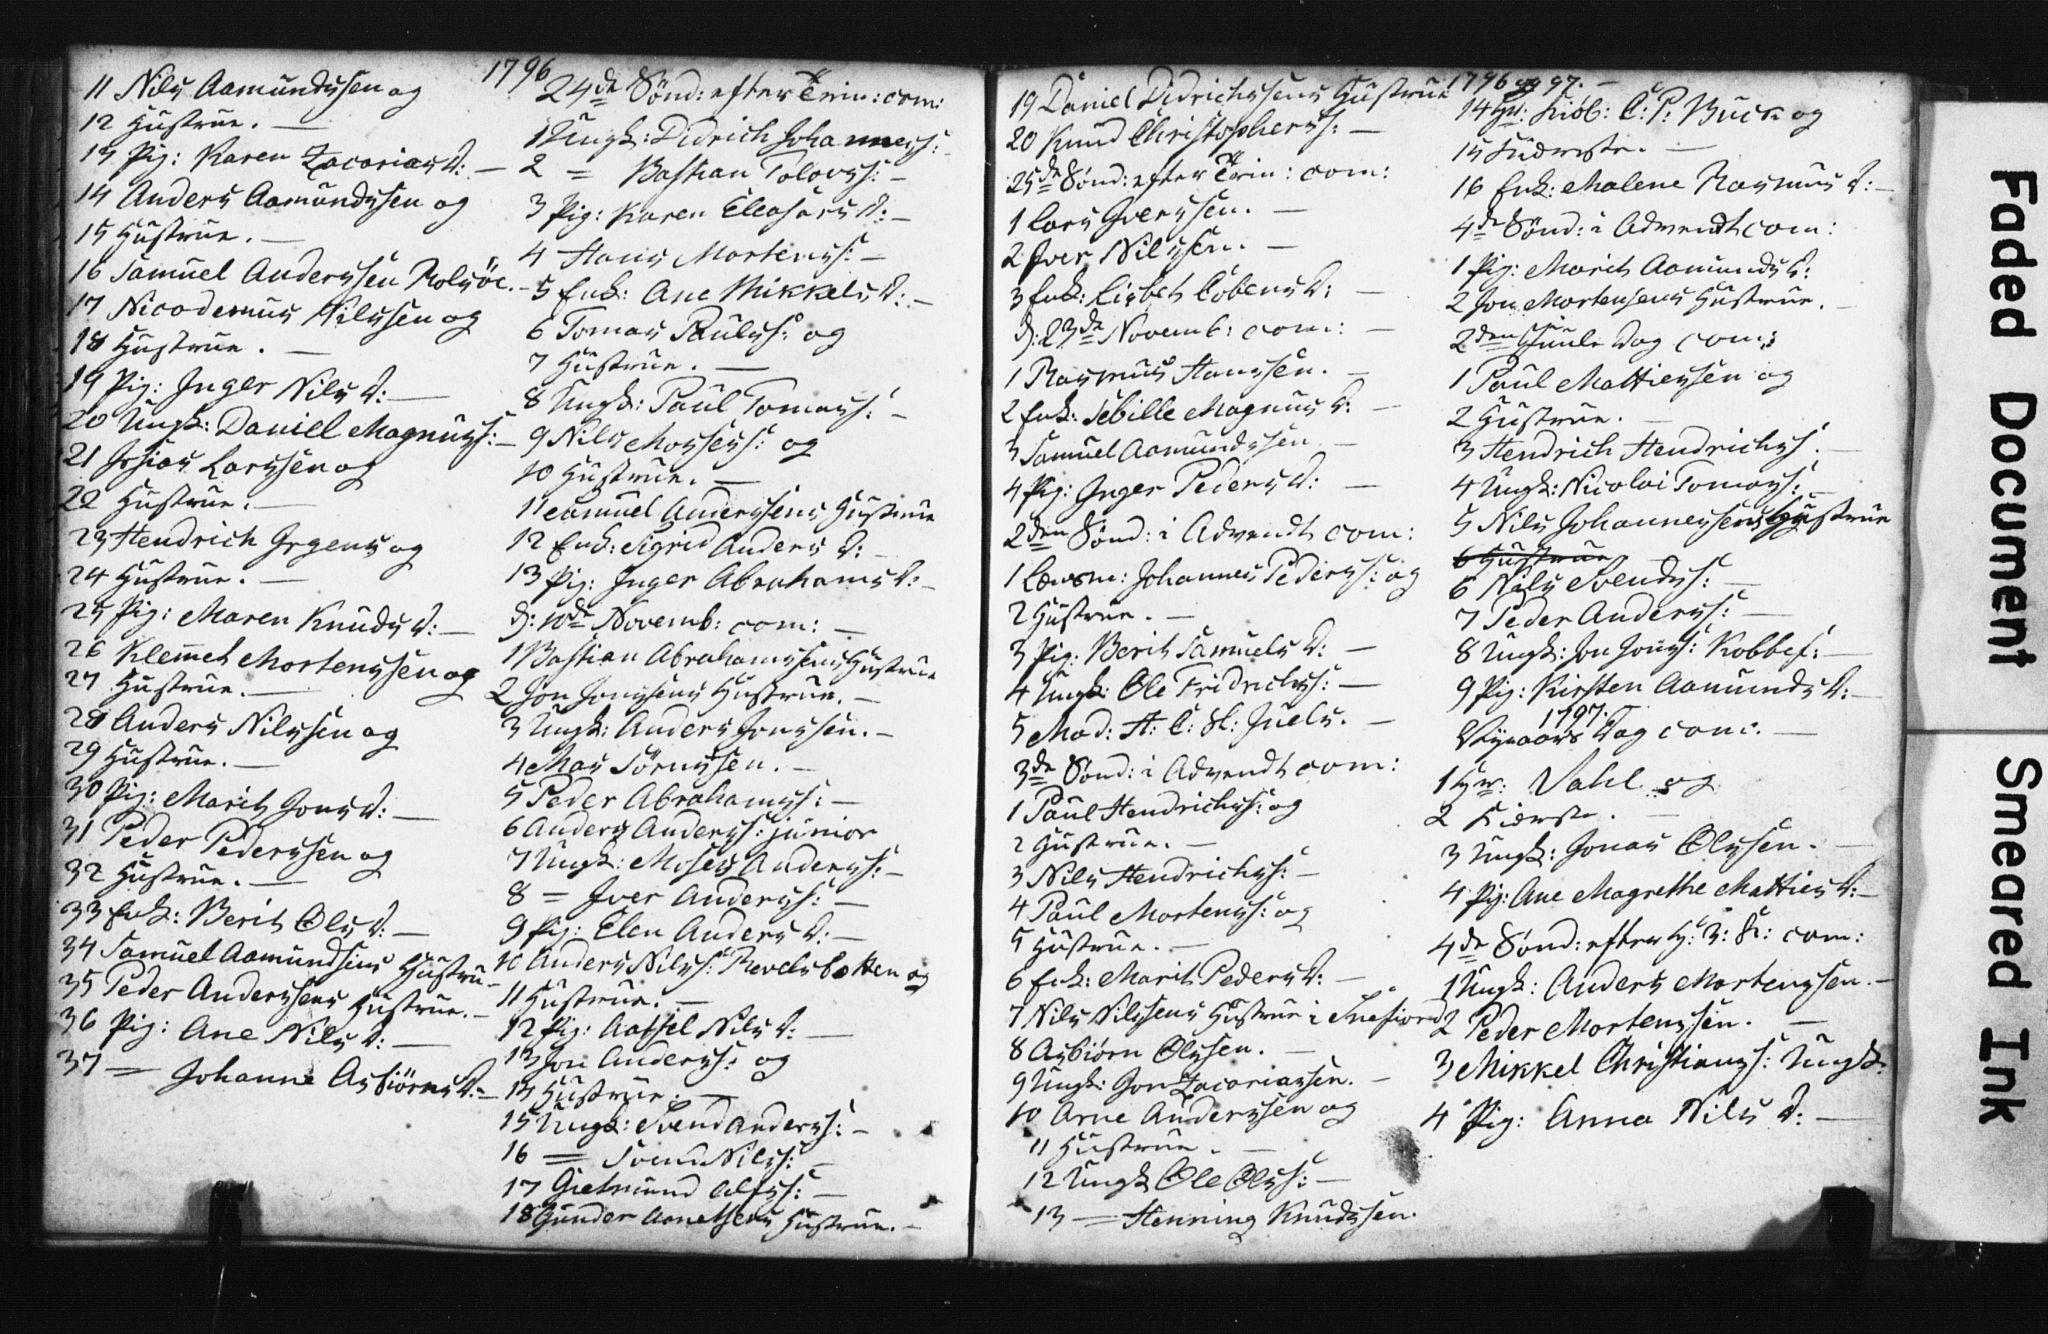 1796
11 Nils Aamundsen og
12 Hustrue. —
13 Pig: Karen ZacariasD: —
14 Anders Aamundsen og
15 Hustrue. —
16 Samuel Andersen Rolsöe. —
17 Nicodemus Nilssen og
18 Hustrue. —
19 Pig: Inger NilsD: —
20 Ungk: Daniel Magnuss: —
21 Josias Larssen og
22 Hustrue. —
23 Hendrich Jrgens og
24 Hustrue. —
25 Pig: Maren KnudsD: —
26 Klemmet Mortenssen og
27 Hustrue. —
28 Anders Nilssen og
29 Hustrue. —
30 Pig: Marit JonsD: —
31 Peder Pederssen og
32 Hustrue. —
33 Enk: Berit OlsD: —
34 Samuel Aamundsens Hustru —
35 Peder Anderssens Hustrue. —
36 Pig: Ane NilsD: —
37 — Johanna AsbiörnsD: —
24de Sönd: efter Trin: com:
1 Ungk: Didrich Johanness: —
2 = Bastian Tolovs: —
3 Pig: Karen EleasarsD: —
4 Hans Mortens: —
5 Enk: Ane MikkelsD: —
6 Tomas Pauls: og
7 Hustrue. —
8 Ungk: Paul Tomass: —
9 Nils Moses: og
10 Hustrue. —
11 Samuel Anderssens Hustrue
12 Enk: Sigrid AndersD: —
13 Pig: Inger AbrahamsD: —
d: 10de Novemb: com: —
1 Bastian Abrahamssens Hustrue
2 Jon Jonssens Hustrue. —
3 Ungk: Anders Jonssen. —
4 Mas Sörenssen. —
5 Peder Abrahams: —
6 Anders Anders: junior
7 Ungk: Moses Anders: —
8 = Iver Anders: —
9 Pig: Elen AndersD: —
10 Anders Nils: Revelsbotten og
11 Hustrue. —
12 Pig: Aatsel NilsD: —
13 Jon Anders: og
14 Hustrue. —
15 Ungk: Svend Anders: —
16 = Nils: —
17 Gietmund —
18 Gunder Hustrue. —
1796 og 97. —
19 Daniel Didrichssens Hustrue
20 Knud Christophers: —
25de Sönd: efter Trin: com:
1 Lars Iverssen. —
2 Iver Nilssen. —
3 Enk: Lisbet CobensD: —
d: 23de Novemb: com: —
1 Rasmus Hanssen. —
2 Enk: Sebille MagnusD: —
3 Samuel Aamundssen —
4 Pig: Inger PedersD: —
2den Sönd: i Advendt com:
1 Lænsm: Johannes Peders: og
2 Hustrue. —
3 Pig: Berit SamuelsD: —
4 Ungk: Ole Fridrichs: —
5 Mad: H: C: Sl: Juels. —
3de Sönd: i Advendt com:
1 Paul Hendrichs: og
2 Hustrue. —
3 Nils Hendrichs: —
4 Paul Mortens: og
5 Hustrue. —
6 Enk: Marit PedersD: —
7 Nils Nilssens Hustrue i Snefiord
8 Asbiörn Olssen. —
9 Ungk: Jon Zacariassen. —
10 Arne Anderssen og
11 Hustrue. —
12 Ungk Ole Ols: —
13 — Henning Knudssen.
14 Hr: Kiöb: C: P: Buck og
15 Kiæreste. —
16 Enk: Malene RasmusD: —
4de Sönd: i Advendt com:
1 Pig: Marit AamundsD:
2 Jon Mortensens Hustrue. —
2den Juule Dag com:
1 Paul Mattiessen og
2 Hustrue.
3 Hendrich Hendrichs: —
4 Ungk: Nicolai Tomas: —
5 Nils Johannessens Hustrue
6 Hustrue
6 Nils Svends: —
7 Peder Anders: —
8 Ungk: Jon Jons: Kobbef: —
9 Pig: Kirsten AamundsD: —
1797.
Nyeaars Dag com: —
1 Hr: Vahl og
2 Kiæreste. —
3 Ungk: Jonas Olssen. —
4 Pig: Ane Magrethe MattiesD: —
4de Sönd: efter H: 3: K: com:
1 Ungk: Anders Mortenssen. —
2 Peder Mortenssen. —
3 Mikkel Christians: Ungk:
4 Pig: Anna NilsD: —
Faded Document
Smeared Ink